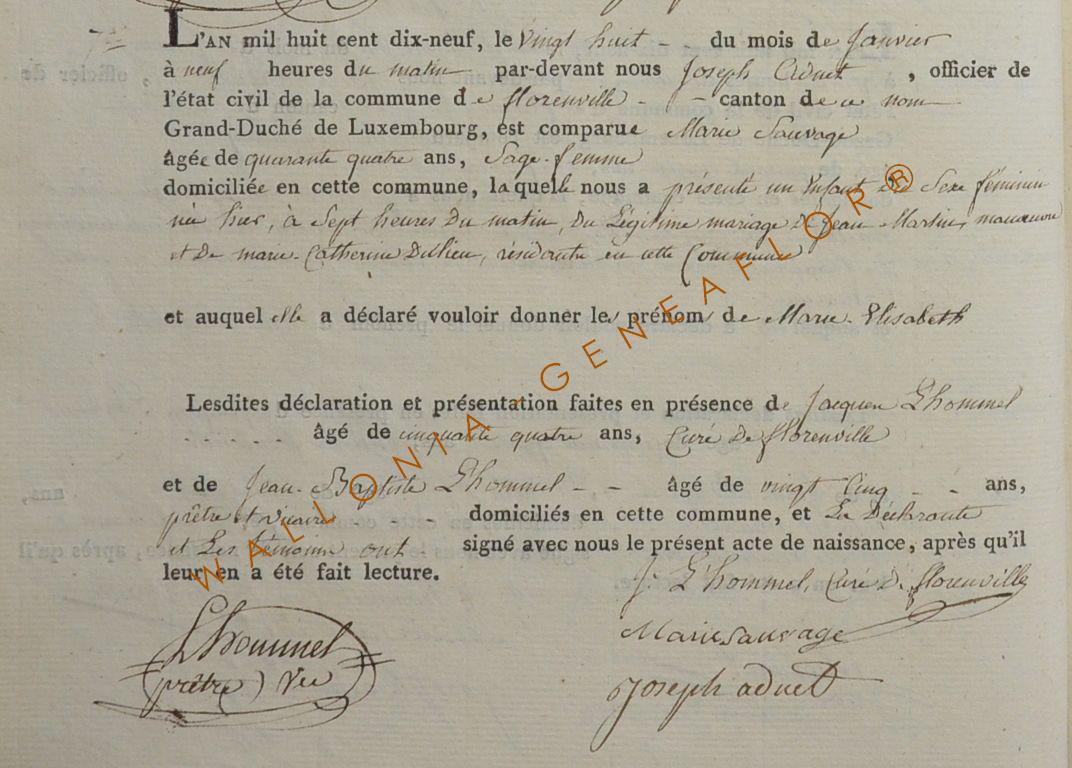 7e
L'AN mil huit cent dix-neuf, le vingt huit - - du mois de Janvier
à neuf heures du matin par-devant nous Joseph Adnet , officier de
l'état civil de la commune de florenville - - canton de ce nom
Grand-Duché de Luxembourg, est comparue Marie Sauvage
âgée de quarante quatre ans, Sage-femme
domiciliée en cette commune, laquelle nous a présenté un Enfant du Sexe féminin
née hier, à Sept heures du matin, du Légitime mariage de Jean Martin, manœuvre
et de marie-Catherine résidante en cette Commune
et auquel elle a déclaré vouloir donner les prénoms de Marie-Elisabeth
Lesdites déclaration et présentation faites en présence de Jacques L'hommel
. . . . . . âgé de cinquante quatre ans, Curé de florenville
et de Jean-Baptiste L'hommel - - âgé de vingt Cinq - - ans,
prêtre et vicaire - domiciliés en cette commune, et La Déclarante
et Les témoins ont signé avec nous le présent acte de naissance, après qu'il
leur en a été fait lecture.
J. L'hommel, Curé de florenville
Marie sauvage
Lhommel
prêtre) Vre
joseph adnet
WALLONIA - GENEAFLOR®